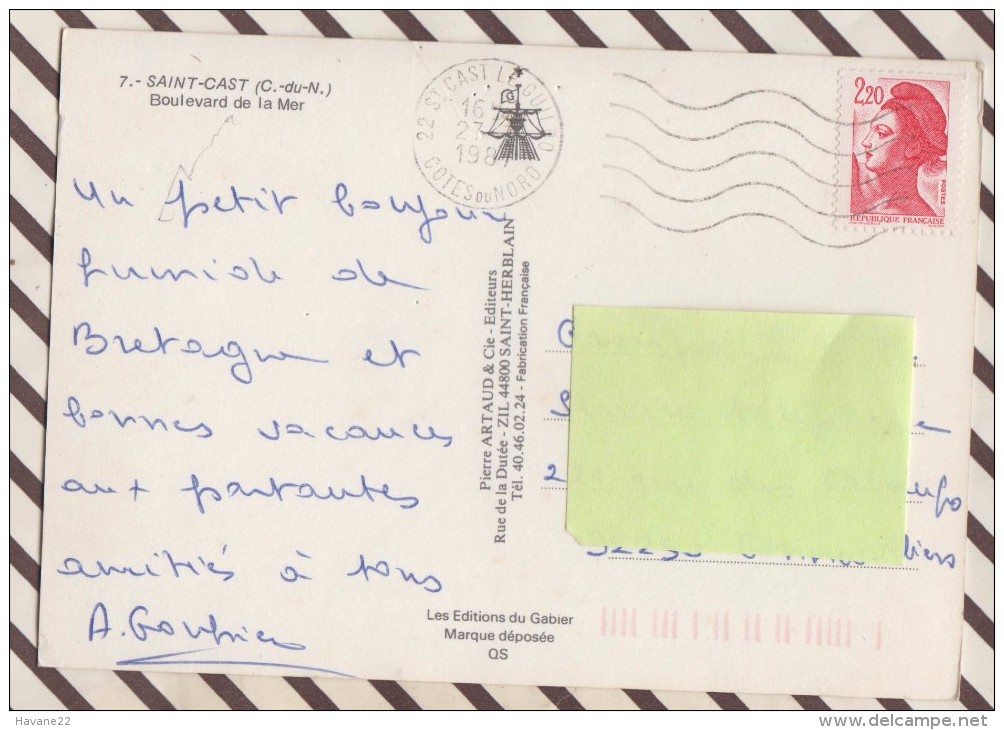 7.- SAINT-CAST (C.-du-N.)
Boulevard de la Mer
22 ST CAST LE GUILDO
16
27
198
COTES DU NORD
2,20
POSTES
RÉPUBLIQUE FRANÇAISE
Un petit bonjour
humide de
Bretagne et
bonnes vacances
aux partantes
amitiés à tous
A.
Pierre ARTAUD & Cie - Editeurs
Rue de la Dutée - ZIL 44800 SAINT-HERBLAIN
Tél. 40.46.02.24 - Fabrication Française
Les Editions du Gabier
Marque déposée
QS
Havane22
www.delcampe.net